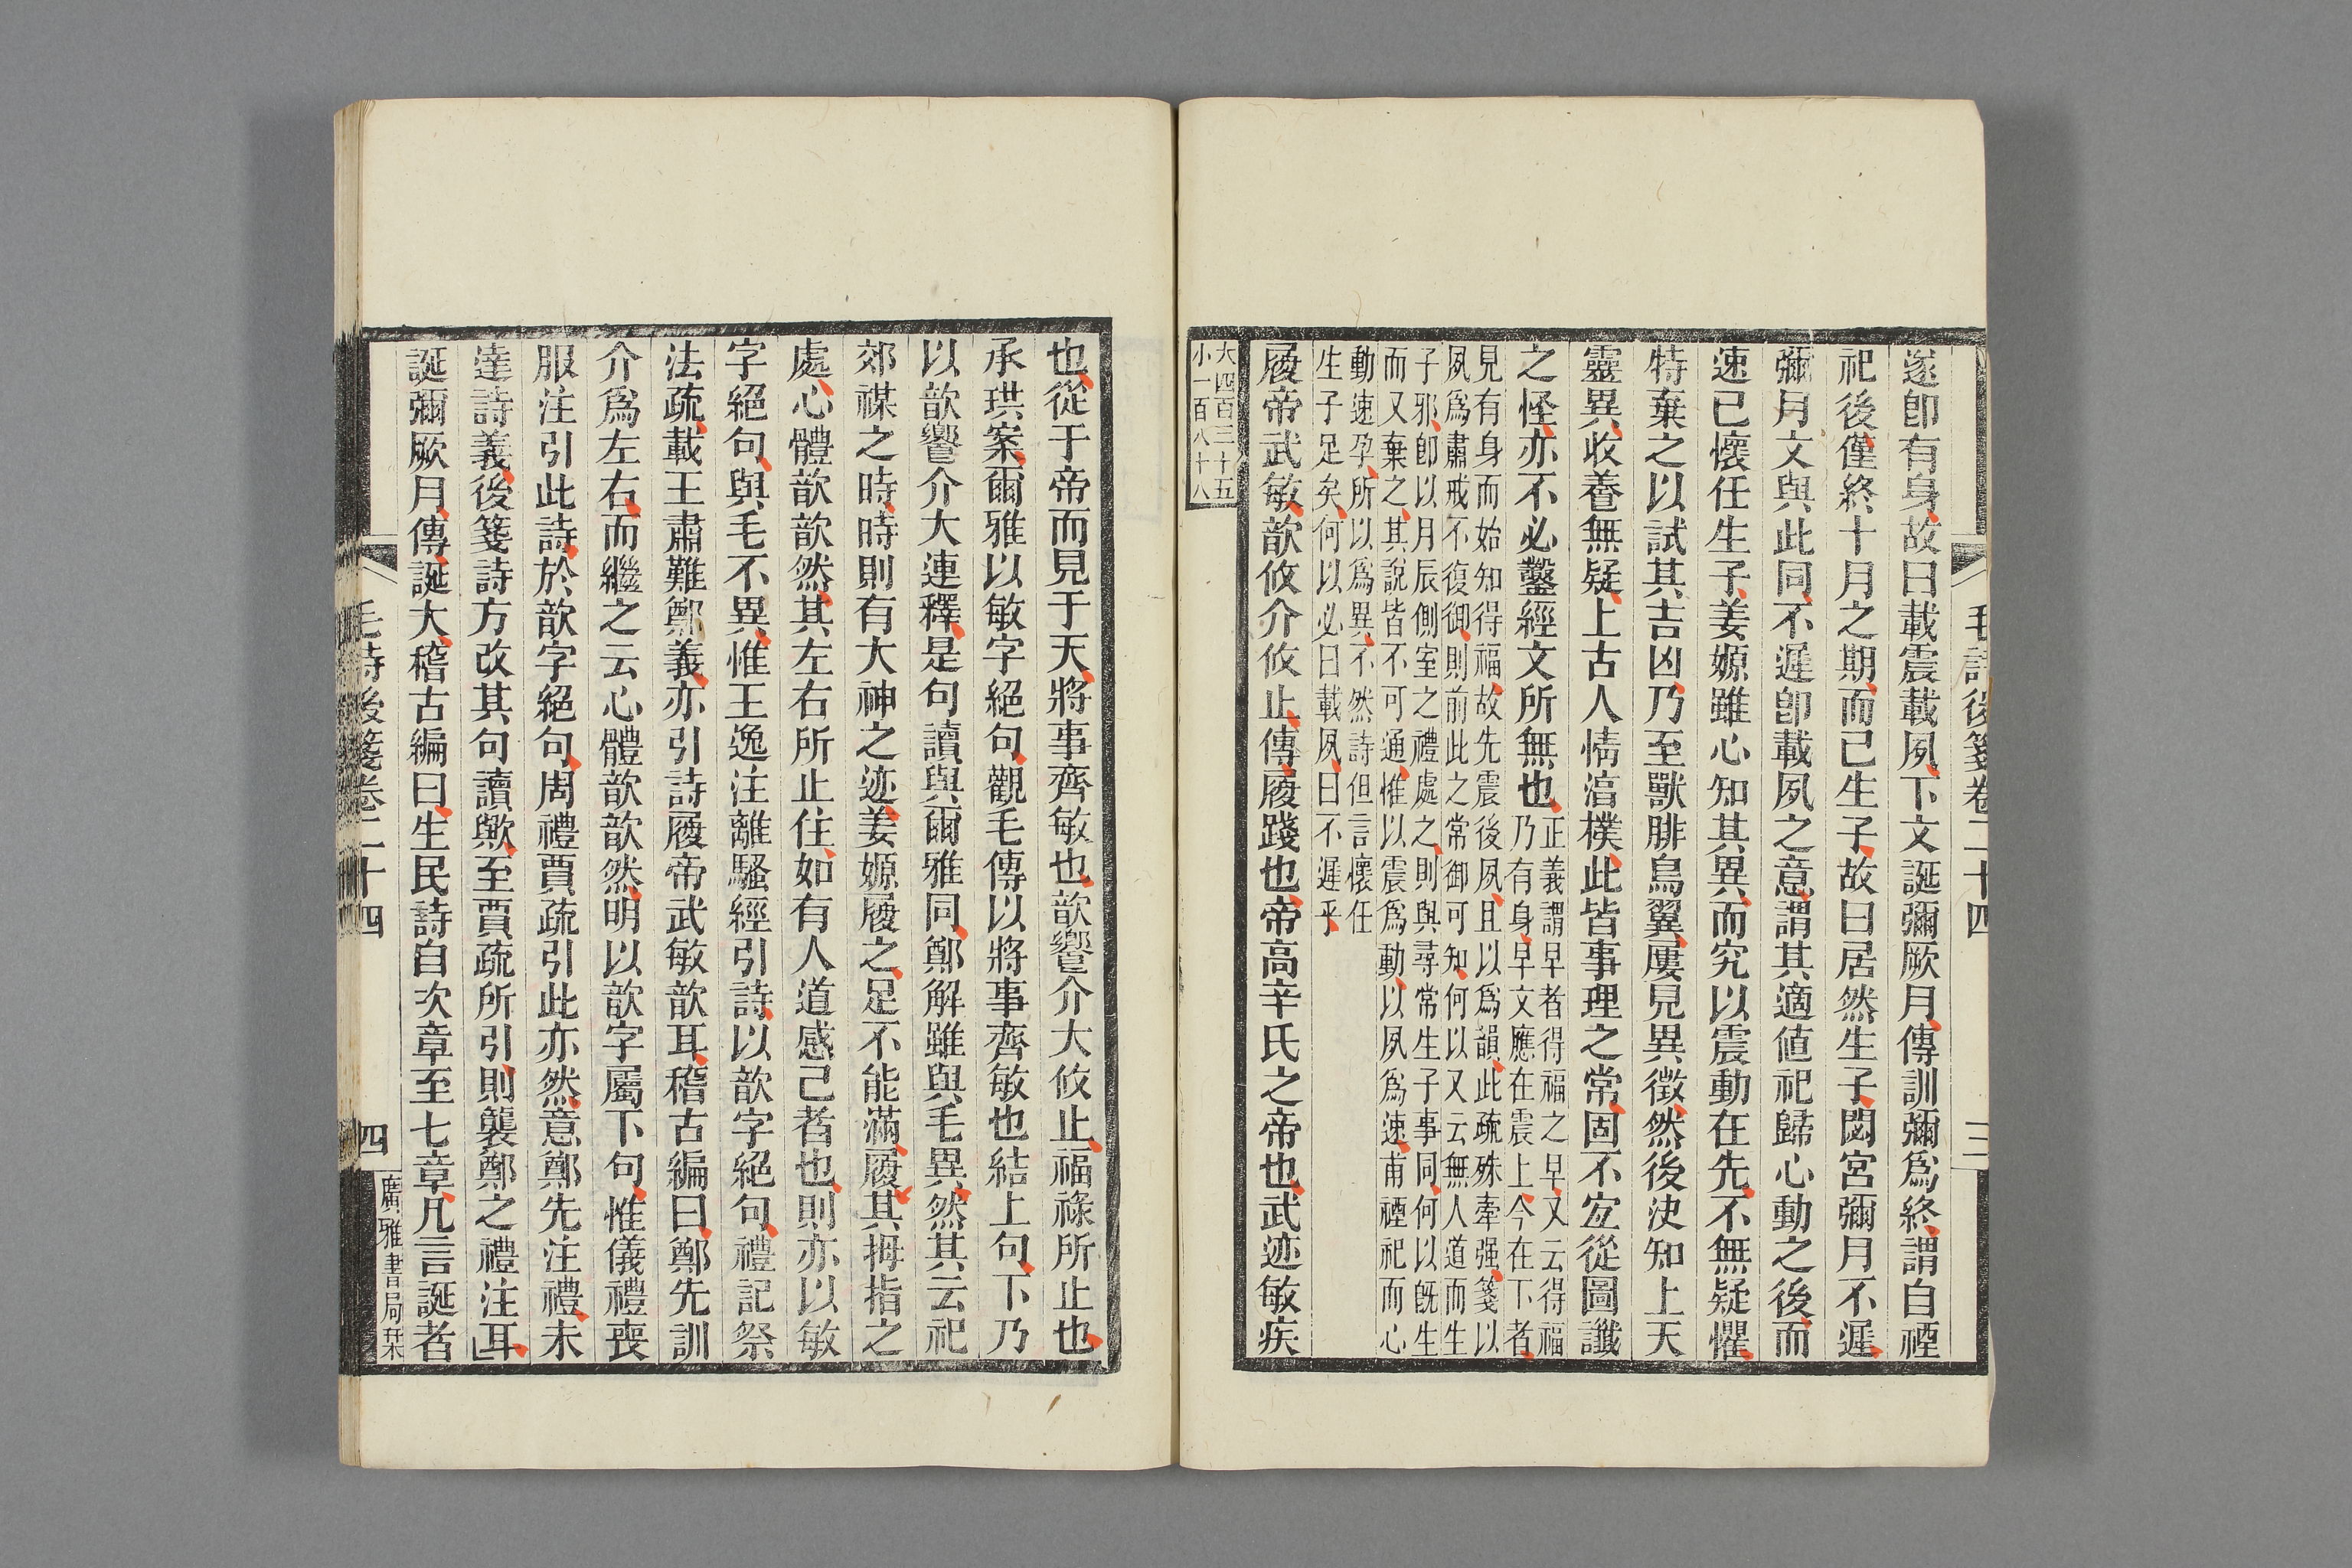 毛詩後箋卷二十四
三
遂卽有身故曰載震載夙下文誕彌厥月傳訓彌爲終謂自禋
祀後僅終十月之期而已生子故曰居然生子閟宮彌月不遲
彌月文與此同不遲卽載夙之意謂其適値祀歸心動之後而
速已懷任生子姜嫄雖心知其異而究以震動在先不無疑懼
特棄之以試其吉凶乃至獸腓鳥翼屢見異徵然後決知上天
靈異收養無疑上古人情湻樸此皆事理之常固不宐從圖讖
之怪亦不必鑿經文所無也
正義謂早者得福之早又云得福
乃有身早文應在震上今在下者
見有身而始知得福故先震後夙且以爲韻此疏殊牽强箋以
夙爲肅戒不復御則前此之常御可知何以又云無人道而生
子邪卽以月辰側室之禮處之則與尋常生子事同何以旣生
而又棄之其說皆不可通惟以震爲動以夙爲速甫禋祀而心
動速孕所以爲異不然詩但言懷任
生子足矣何以必曰載夙曰不遲乎
履帝武敏歆攸介攸止傳履踐也帝高辛氏之帝也武迹敏疾
大四百三十五
小一百八十八
也從于帝而見于天將事齊敏也歆饗介大攸止福祿所止也
承珙案爾雅以敏字絕句觀毛傳以將事齊敏也結上句下乃
以歆饗介大連釋是句讀與爾雅同鄭解雖與毛異然其云祀
郊禖之時時則有大神之迹姜嫄履之足不能滿履其拇指之
處心體歆歆然其左右所止住如有人道感己者也則亦以敏
字絕句與毛不異惟王逸注離騷經引詩以歆字絕句禮記祭
法疏載王肅難鄭義亦引詩履帝武敏歆耳稽古編曰鄭先訓
介爲左右而繼之云心體歆歆然明以歆字屬下句惟儀禮喪
服注引此詩於歆字絕句周禮賈疏引此亦然意鄭先注禮未
達詩義後箋詩方改其句讀歟至賈疏所引則襲鄭之禮注耳
誕彌厥月傳誕大稽古編曰生民詩自次章至七章凡言誕者
毛詩後箋卷二十四
四
廣雅書局栞